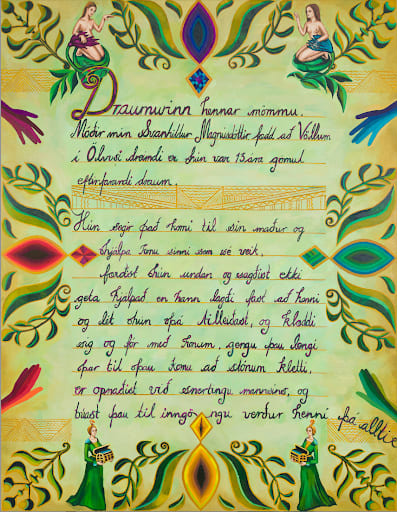 Draumurinn hennar mömmu.
Móðir mín Svanhildur Magnúsdóttir fædd að Völlum
í Ölvusi dreymdi er hún var 13 ára gömul
eftirfarandi draum.
Hún segir það komi til sin maður og
hjálpa konu sinni sem sé veik,
færdist hún undan og sagdist ekki
geta hjálpað en hann lagdi fast að henni
og lét hún þá tilleidast, og klæddi
sig og fór með honum, gengu þau lengi
þar til þau komu að stórum kletti,
er opnadist við snertingu mannsins, og
búast þau til inngöngu verdur henni þá allt í e